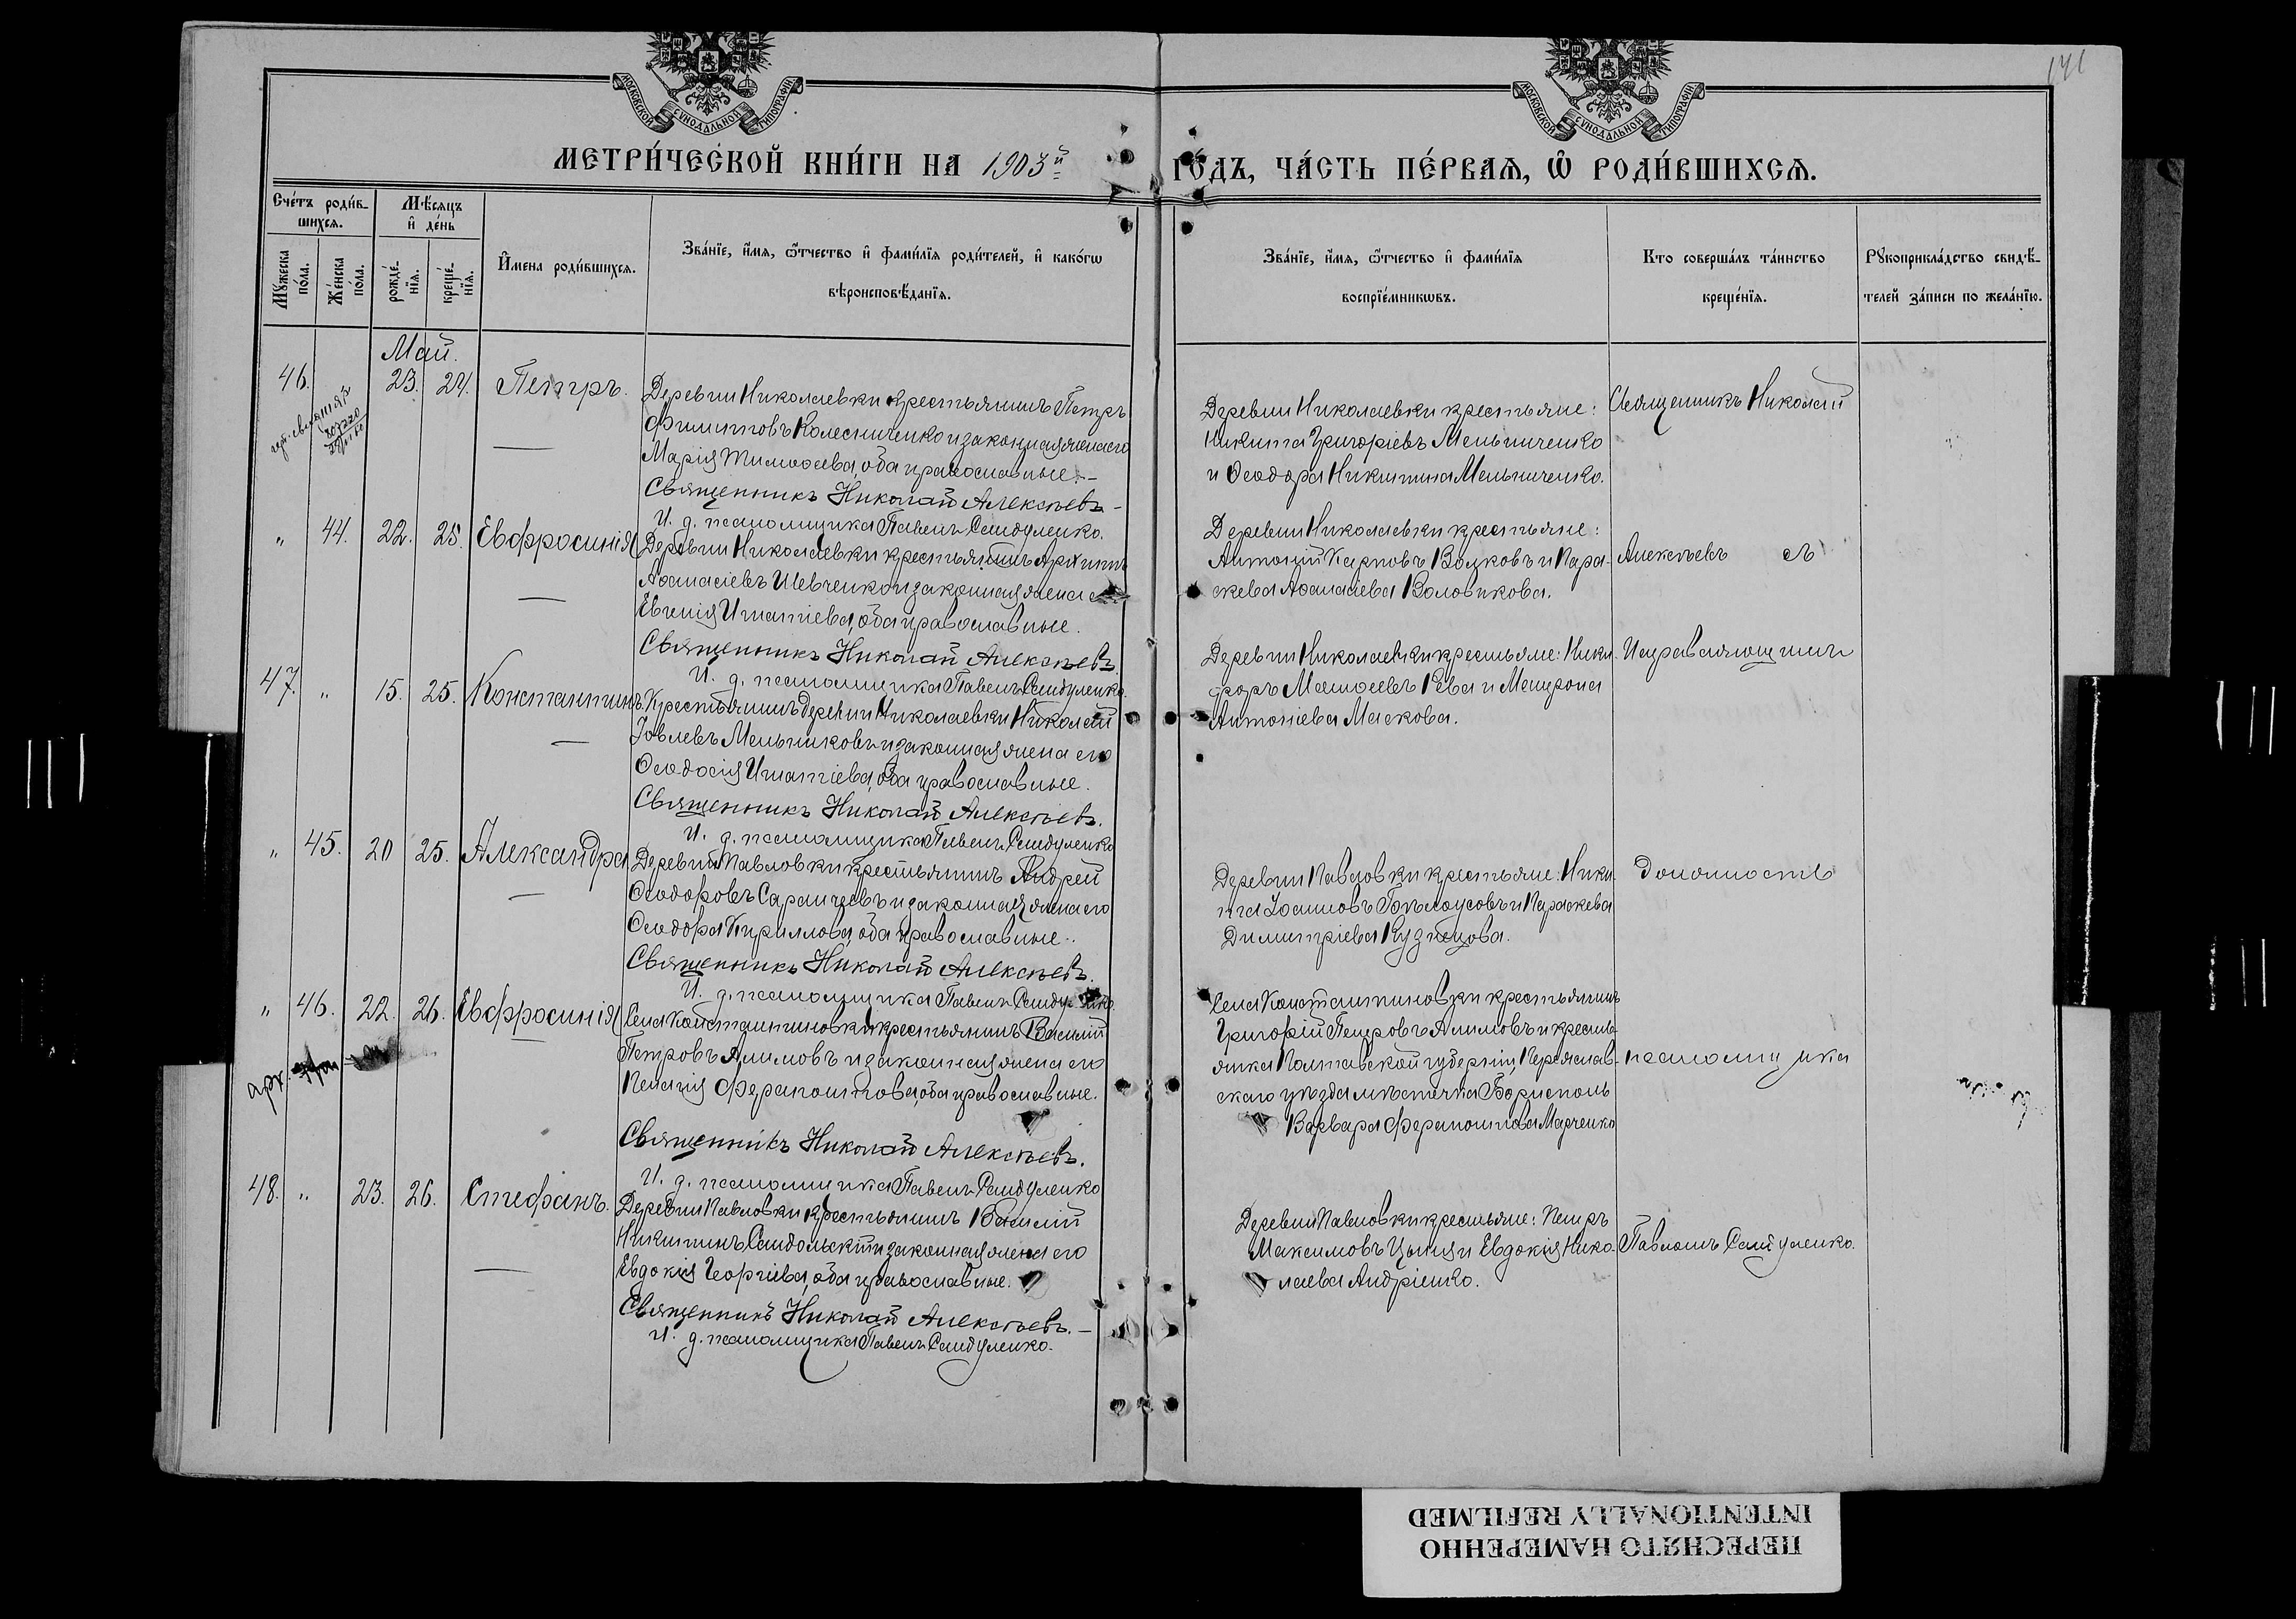 141
МОСКОВСКОЙ СѴНОДАЛЬНОЙ ТИПОГРАФІИ
МОСКОВСКОЙ СѴНОДАЛЬНОЙ ТИПОГРАФІИ
МЕТРИ́ЧЕСКОЙ КНИ́ГИ НА 1903й ГО́ДЪ, ЧА́СТЬ ПЕ́РВАѦ, Ѡ҆ РОДИ́ВШИХСѦ.
Сче́тъ роди́в-
шихсѧ.
Мѣ́сѧцъ
и҆ де́нь
Мꙋ́жеска
по́ла.
Же́нска
по́ла.
рожде́-
нїѧ.
креще́-
нїѧ.
И҆мена роди́вшихсѧ.
Зва́нїе, и҆́мѧ, ѻ҆́тчество и҆ фами́лїѧ роди́телей, и҆ како́гѡ
вѣроисповѣ́данїѧ.
Зва́нїе, и҆́мѧ, ѻ҆́тчество и҆ фами́лїѧ
воспрїе́мникѡвъ.
Кто соверша́лъ та́инство
креще́нїѧ.
Рꙋкоприкла́дство свидѣ́-
телей за́писи по жела́нїю.
Май.
46. 23. 24. Петръ.
Деревни Николаевки крестьянинъ Петръ
Филипповъ Колесниченко и законная жена его
Марія Тимоѳеева, оба православные.-
Священникъ Николай Алексѣевъ-
И. д. псаломщика Павелъ Самдуленко.
Деревни Николаевки крестьяне:
Никита Григоріевъ Мельниченко
и Ѳеодора Никитина Мельниченко.
Священникъ Николай
" 44. 22. 25. Евфросинія
Деревни Николаевки крестьянинъ Архипъ
Аѳанасіевъ Шевченко и законная жена его
Евгенія Игнатіева, оба православные.
Священникъ Николай Алексѣевъ.
И. д. псаломщика Павелъ Самдуленко.
Деревни Николаевки крестьяне:
Антоній Карповъ Волковъ и Пара-
скева Аѳанасіева Воловикова.
Алексѣевъ съ
47. " 15. 25. Константинъ.
Крестьянинъ деревни Николаевки Николай
Іовлевъ Мельниковъ и законная жена его
Ѳеодосія Игнатіева, оба православные.
Священникъ Николай Алексѣевъ.
И. д. псаломщика Павелъ Самдуленко
Деревни Николаевки крестьяне: Ники-
форъ Матѳеевъ Рева и Матрона
Антоніева Маскова.
Исправляющимъ
" 45. 20 25. Александра
Деревни Павловки крестьянинъ Андрей
Ѳеодоровъ Саранчевъ и законная жена его
Ѳеодора Кириллова, оба православные..
Священникъ Николай Алексѣевъ.
И. д. псаломщика Павелъ Самдуленко
Деревни Павловки крестьяне: Ники-
та Іоанновъ Бѣлоусовъ и Параскева
Димитріева Кузнецова.
должность
" 46. 22. 26. Евфросинія
Села Константиновки крестьянинъ Василій
Петровъ Алимовъ и законная жена его
Пелагія Ферапонтова, оба православные.
Священникъ Николай Алексѣевъ.
И. д. псаломщика Павелъ Самдуленко
Села Константиновки крестьянинъ
Григорій Петровъ Алимовъ и кресть-
янка Полтавской губерніи, Переяслав-
скаго уѣзда мѣстечка Борисполь
Варвара Ферапонтова Марченко
псаломщика
48. " 23. 26. Стефанъ.
Деревни Павловки крестьянинъ Василій
Никитинъ Сандольскій и законная жена его
Евдокія Георгіева, оба православные.
Священникъ Николай Алексѣевъ.-
И. д. псаломщика Павелъ Самдуленко.
Деревни Павловки крестьяне: Петръ
Максимовъ Цыця и Евдокія Нико-
лаева Андріенко.
Павломъ Самдуленко.
ПЕРЕСНЯТО НАМЕРЕННО
INTENTIONALLY REFILMED